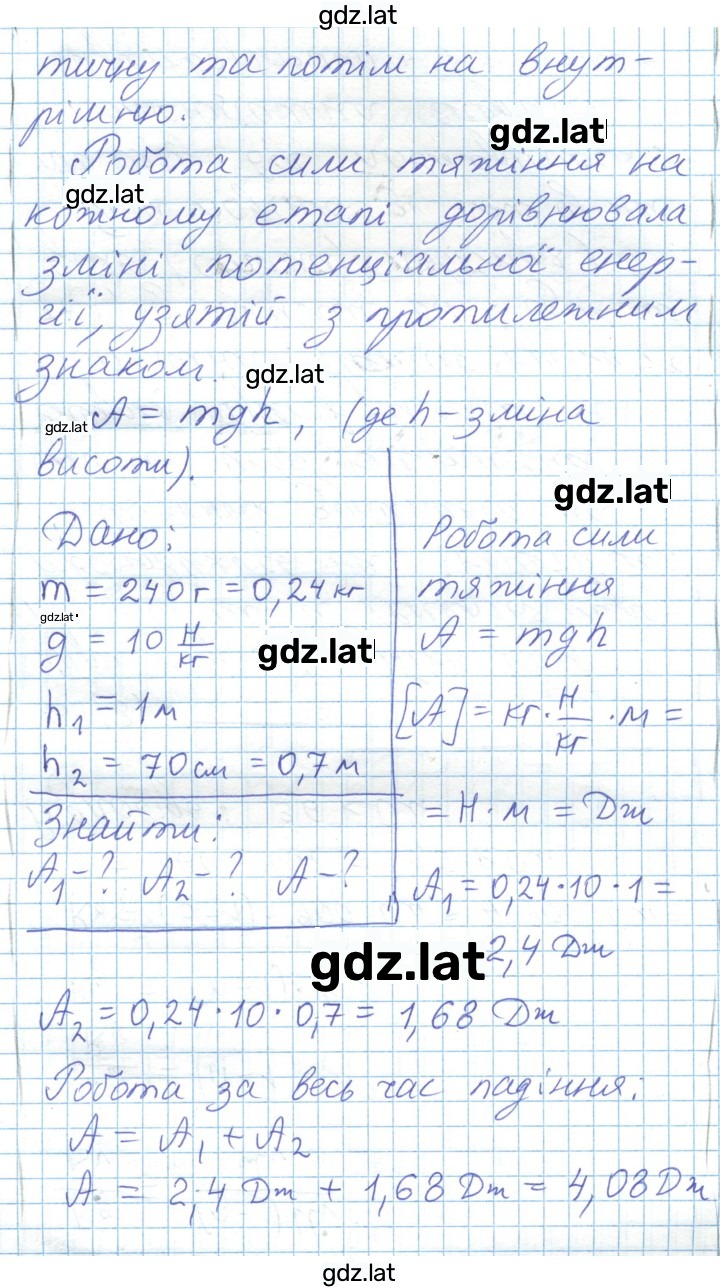 gdz.lat
тичну та потім на внут-
рішню.
gdz.lat
Робота сили тяжіння на
gdz.lat
кожному етапі дорівнювала
зміні потенціальної енер-
гії, узятій з протилежним
знаком.
gdz.lat
gdz.lat
A = mgh, (де h - зміна
висоти).
gdz.lat
Дано:
m = 240 г = 0,24 кг
gdz.lat
g = 10 Н/кг
gdz.lat
h₁ = 1 м
h₂ = 70 см = 0,7 м
Знайти:
A₁ - ? A₂ - ? A - ?
Робота сили
тяжіння
A = mgh
[A] = кг · Н/кг · м =
= Н · м = Дж
A₁ = 0,24 · 10 · 1 =
gdz.lat
2,4 Дж
A₂ = 0,24 · 10 · 0,7 = 1,68 Дж
Робота за весь час падіння:
A = A₁ + A₂
A = 2,4 Дж + 1,68 Дж = 4,08 Дж
gdz.lat